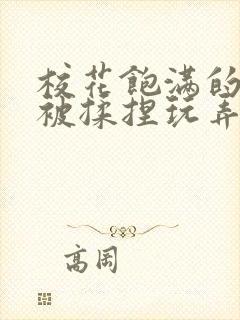 校花飽满的
被揉捏玩弄
高岡